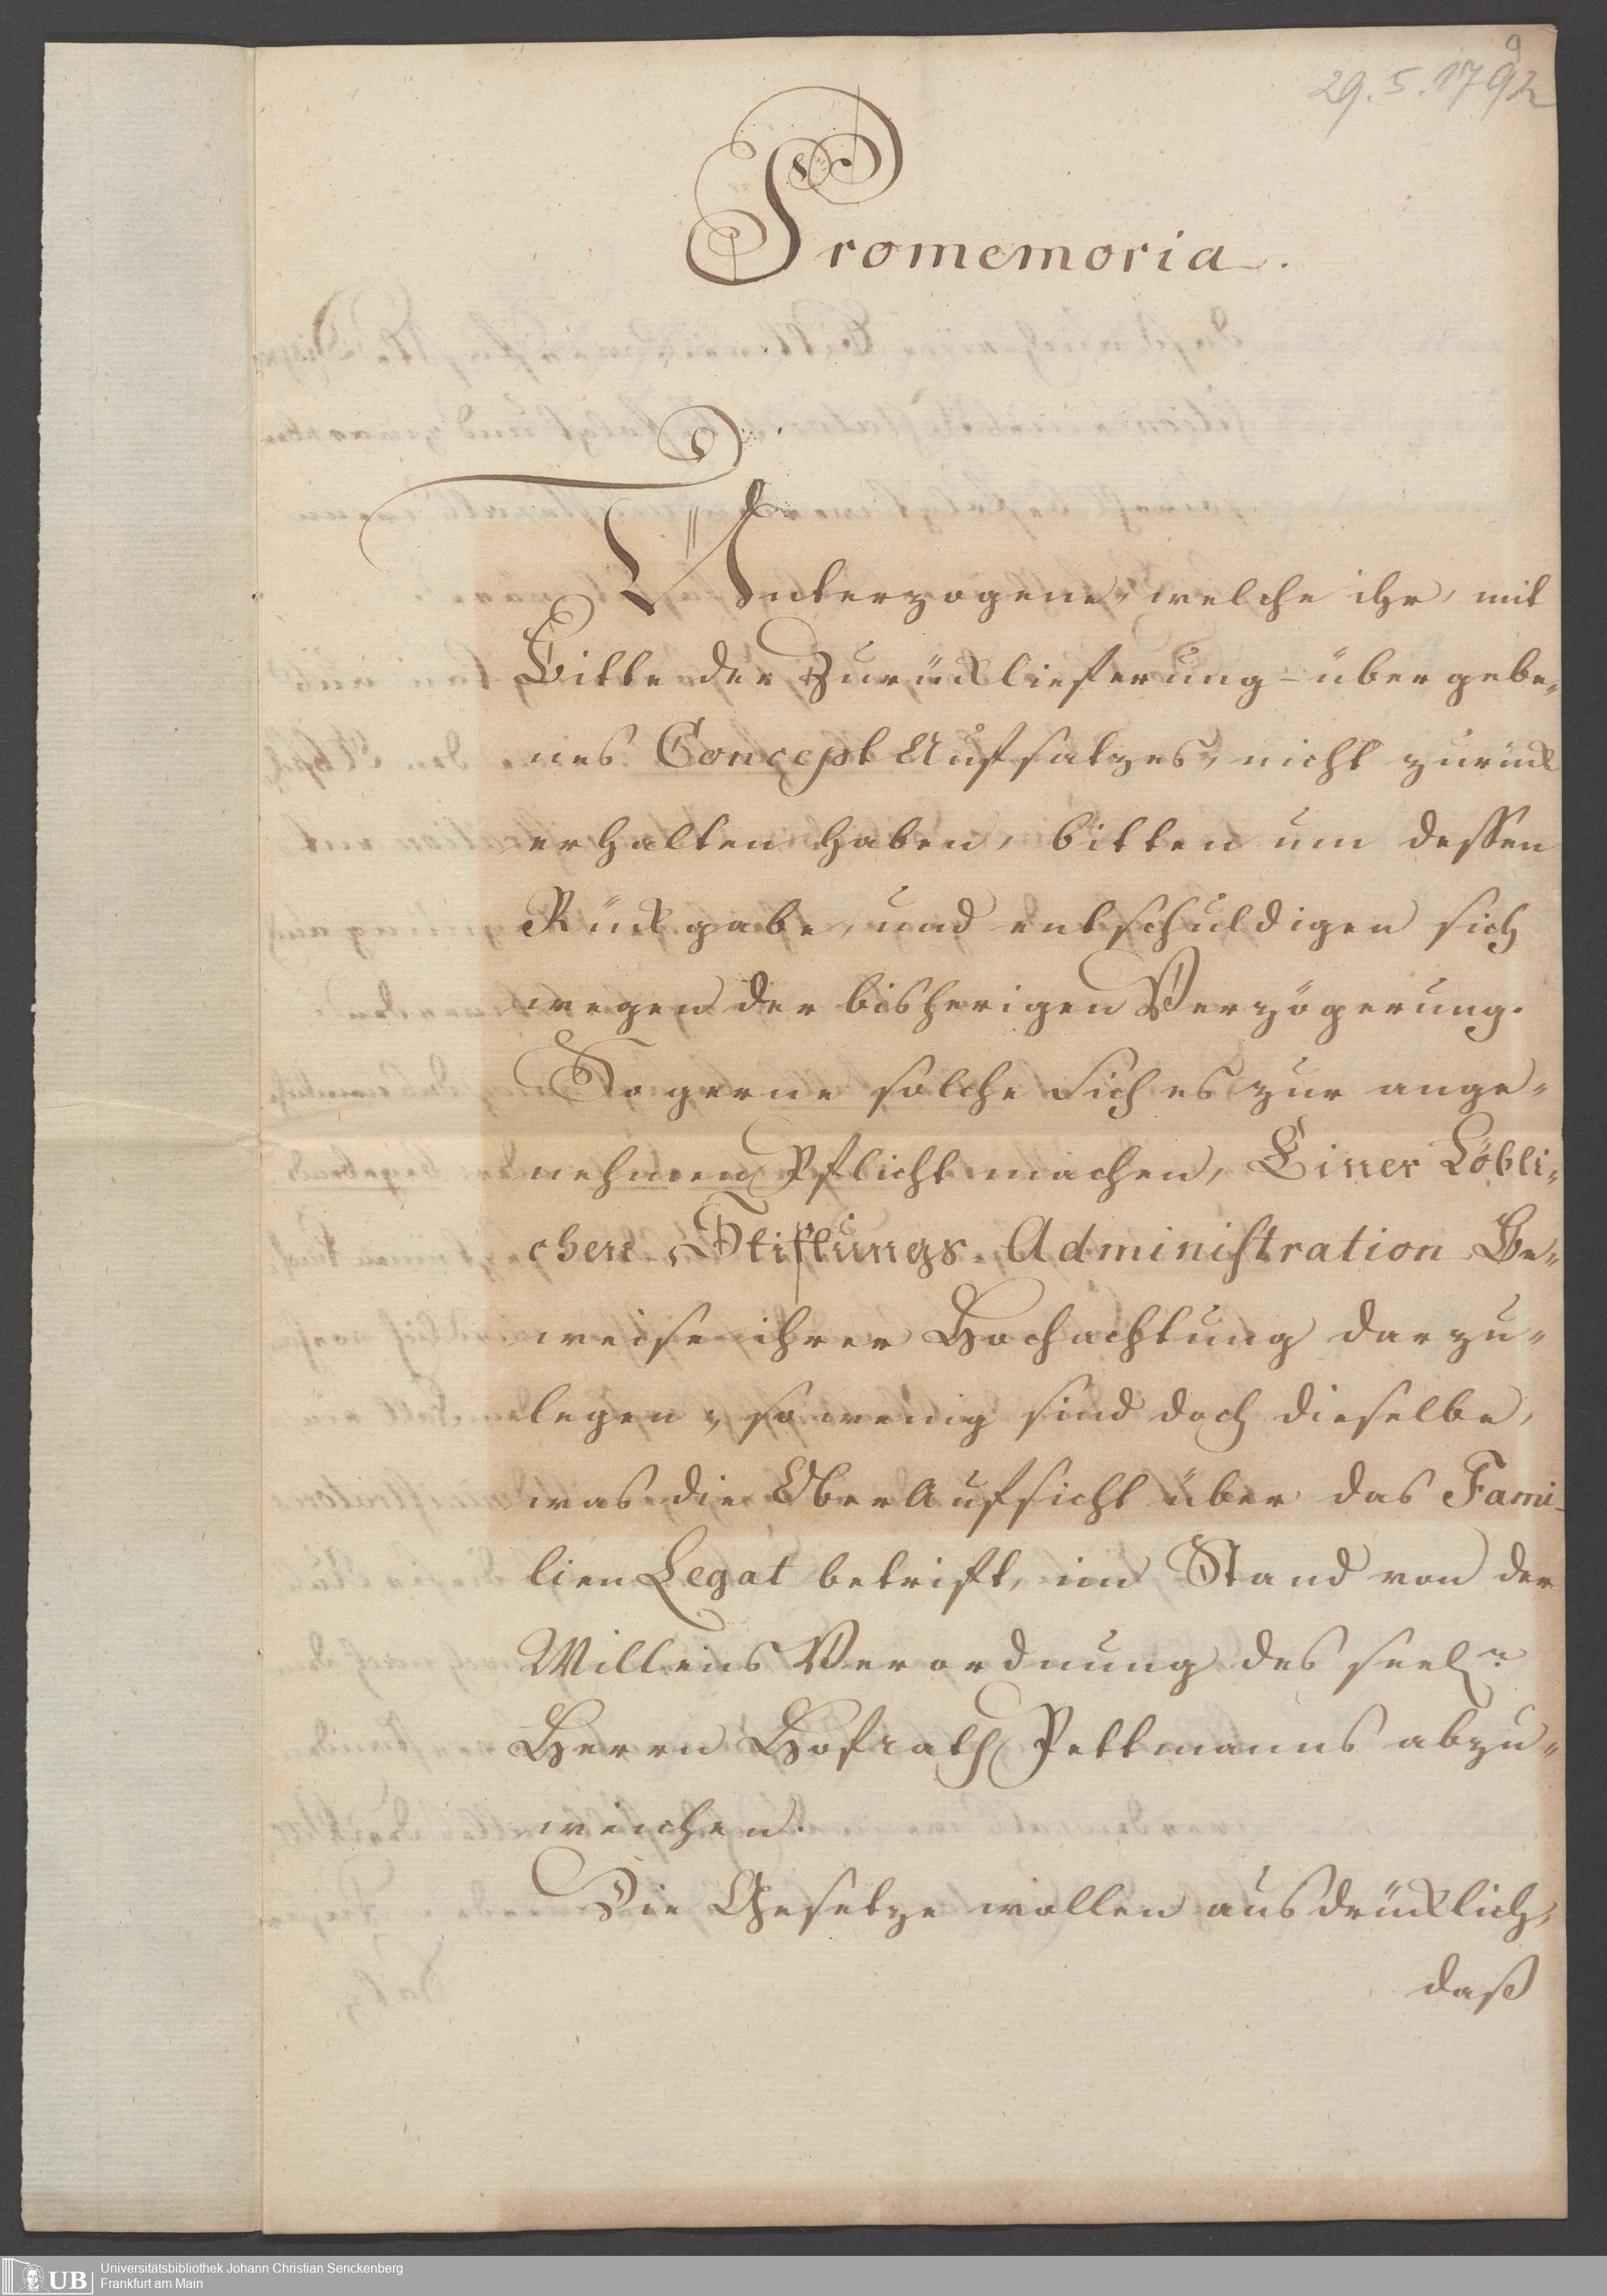 9
29. 5. 1792
Promemoria.
Unterzogene, welche ihr, mit
Bitte der Zurücklieferung-übergebe„
nes Concept Aufsatzes, nicht zurück
erhalten haben, bitten um dessen
Rückgabe, und entschuldigen sich
wegen der bisherigen Verzögerung.
So gerne solche sich es zur ange„
nehmen Pflicht machen, Einer Löbli„
chen Stiftungs-Administration Be„
weise ihrer Hochachtung darzu„
legen; so wenig sind doch dieselbe,
was die OberAufsicht über das Fami-
lien Legat betrift, im Stand von der
Willens Verordnung des seeln
Herrn Hofrath Pettmanns abzu„
weichen.
Die Gesetze wollen ausdrücklich,
daß
UB
Universitätsbibliothek Johann Christian Senckenberg
Frankfurt am Main